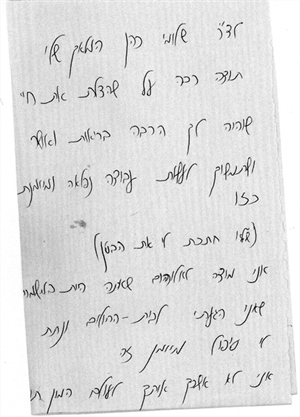 לד"ר שלומי כהן המלאך שלי
תודה רבה על שהצלת את חיי
שיהיה לך הרבה בריאות ואושר
ושתמשיך לעשות עבודה נפלאה ומיומנת
כזו
(שלי חתכת לי את הבטן)
אני מודה לאלוהים שאתה היית במשמרת
שאני הגעתי לבית-החולים ונתת
לי טיפול מיומן זה
אני לא אשכח אותך לעולם המון